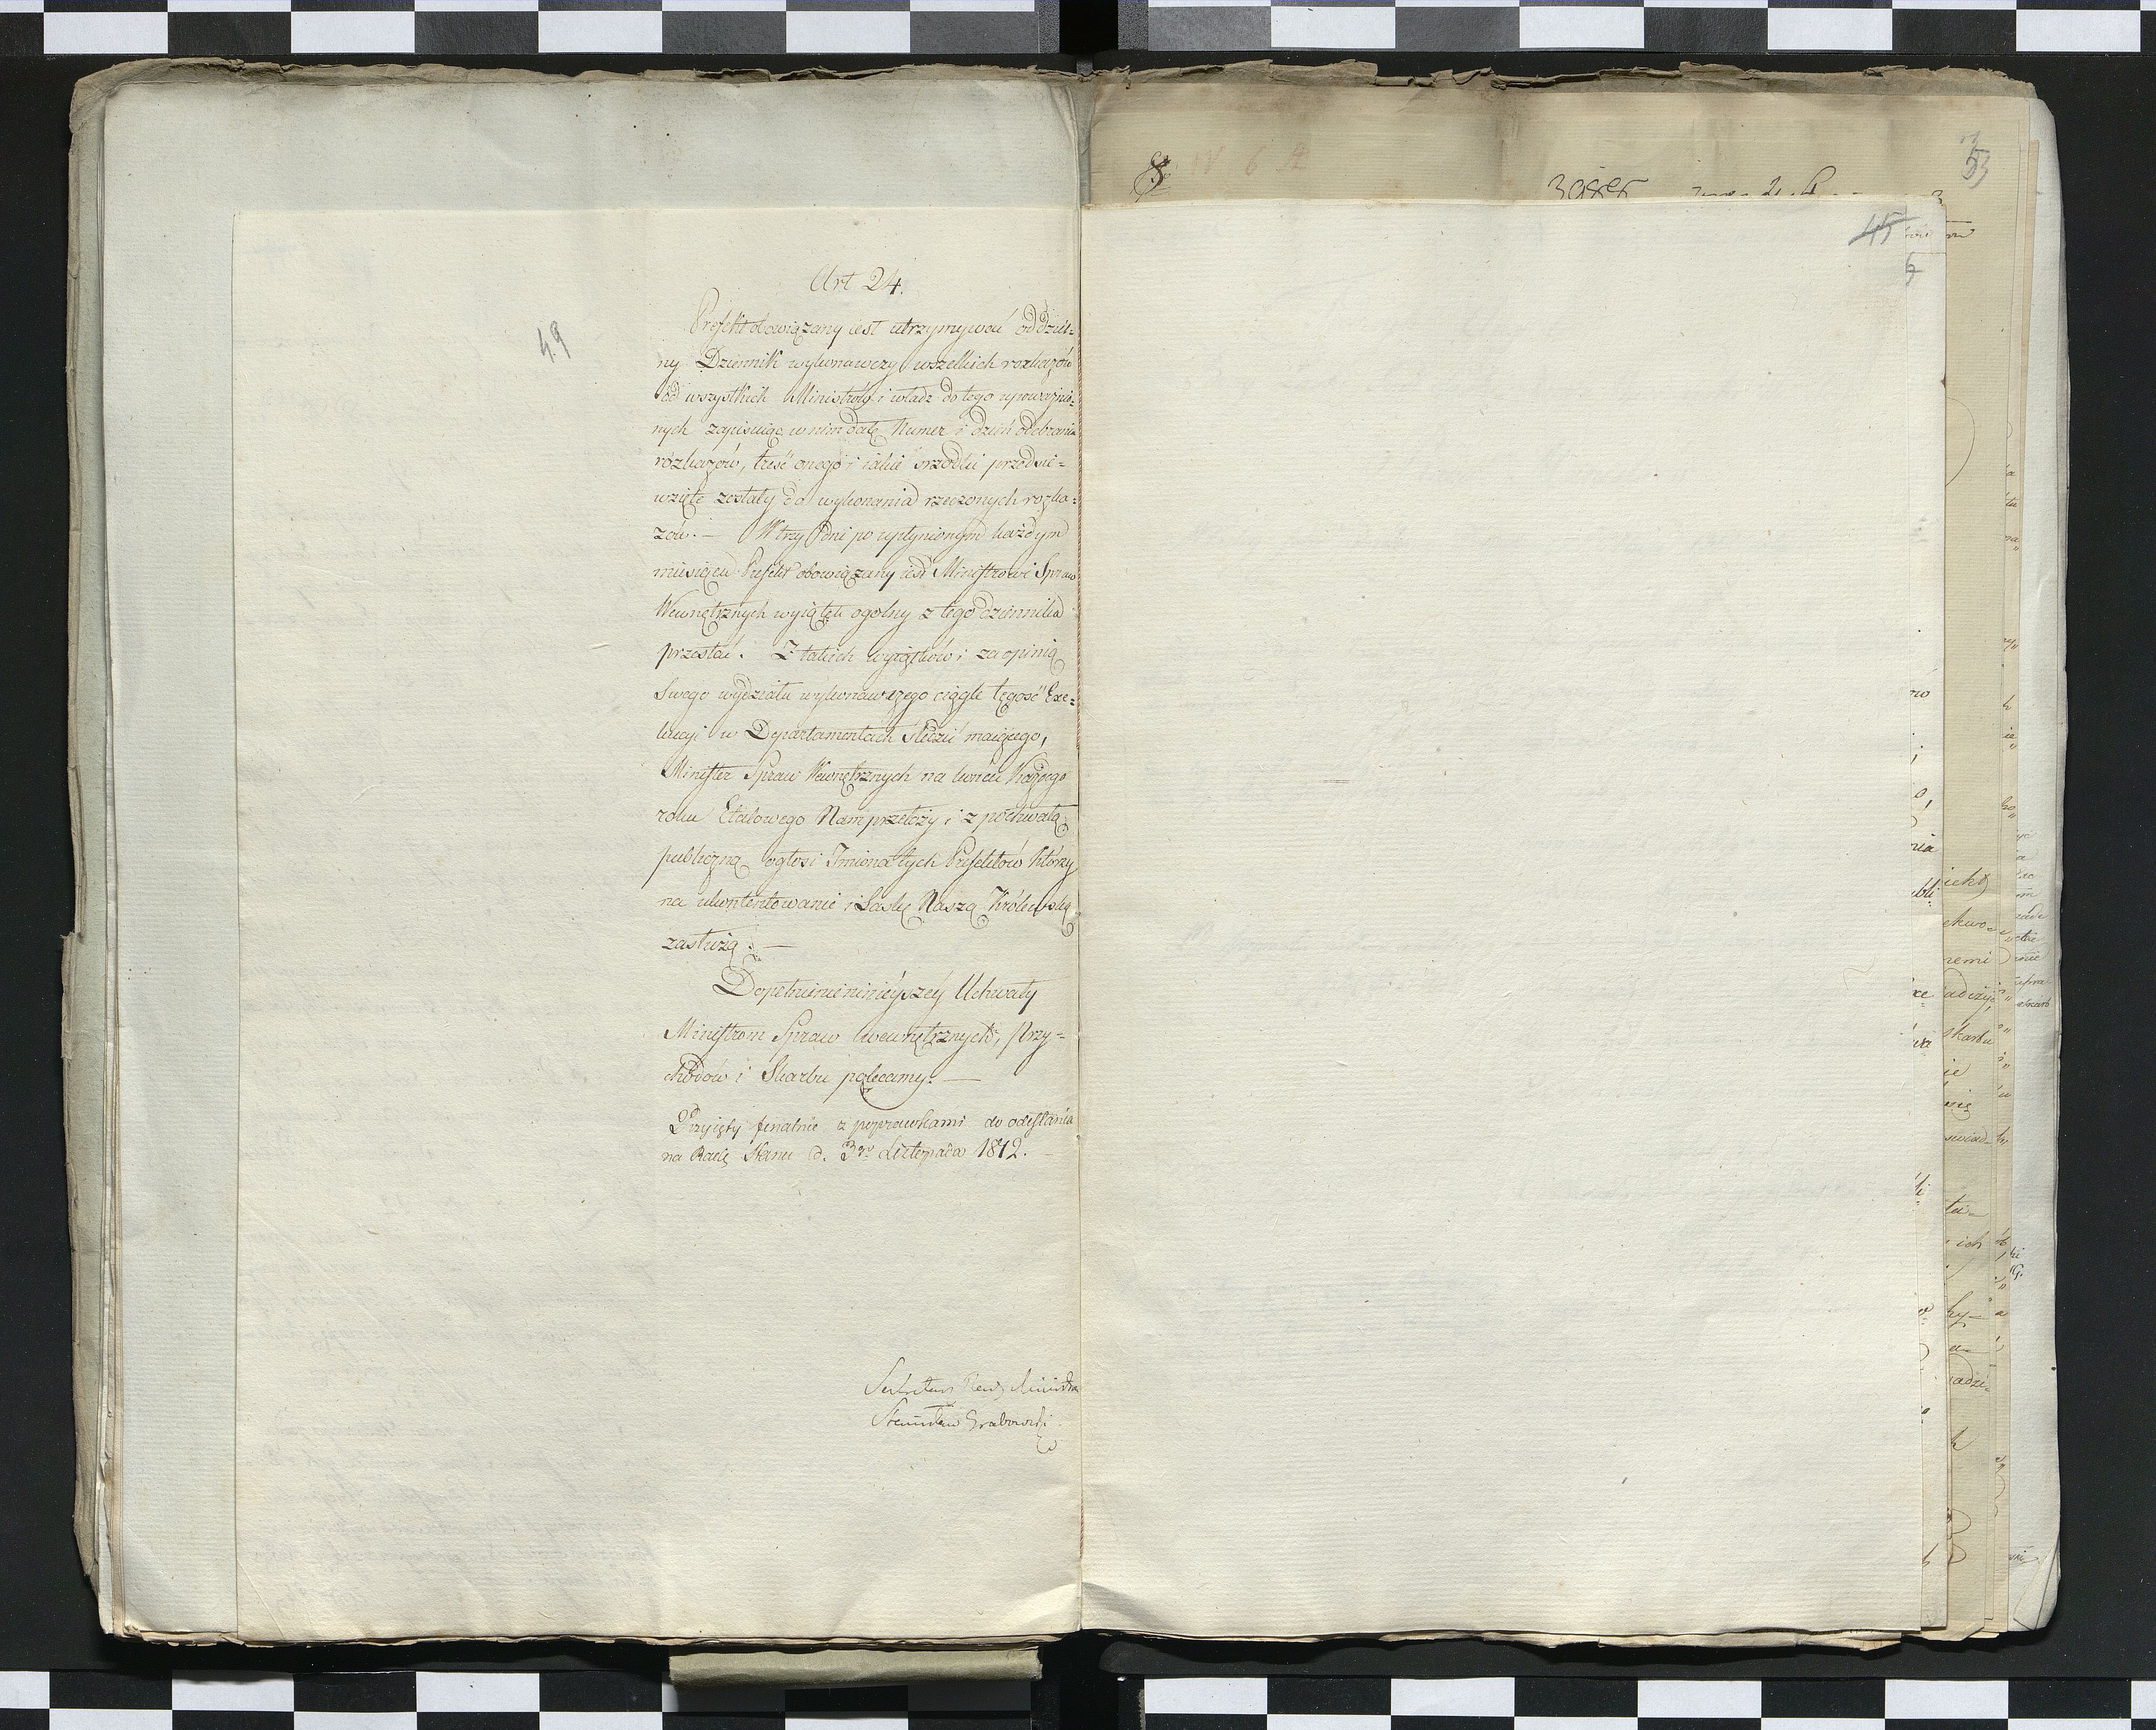 Art 24.
49
Prefekt obowiązany iest utrzymywać oddziel=
ny Dziennik wykonawczy wszelkich rozkazów
od wszystkich Ministrów i władz do tego upoważnio=
nych zapisuiąc w nim datę Numer i dzień odebrania
rozkazów, treść onego i iakie srzodki przedsie=
wzięte zostały do wykonania rzeczonych rozka=
zów. — W trzy dni po upłynionym każdym
miesiącu Prefekt obowiązany iest Ministrowi Spraw
Wewnętrznych wyiątek ogolny z tego dziennika
przesłać. Z takich wyiątków i za opinią
Swego wydziału wykonawczego ciągle tęgość Exe=
kucyi w Departamentach śledzić maiącego,
Minister Spraw Wewnętrznych na końcu Każdego
roku Etatowego Nam przełoży i z pochwałą
publiczną ogłosi Imiona tych Prefektów którzy
na ukontentowanie i Łaskę Naszą Królewską
zasłużą. —
Dopełnienie ninieyszey Uchwały
Ministrom Spraw wewnętrznych, Przy=
chodów i Skarbu polecamy. —
Przyięty finalnie z poprawkami do odesłania
na Radę Stanu d. 3go Listopada 1812. —
Sekretarz Rady Ministrów
Stanisław Grabowski
8
53
45